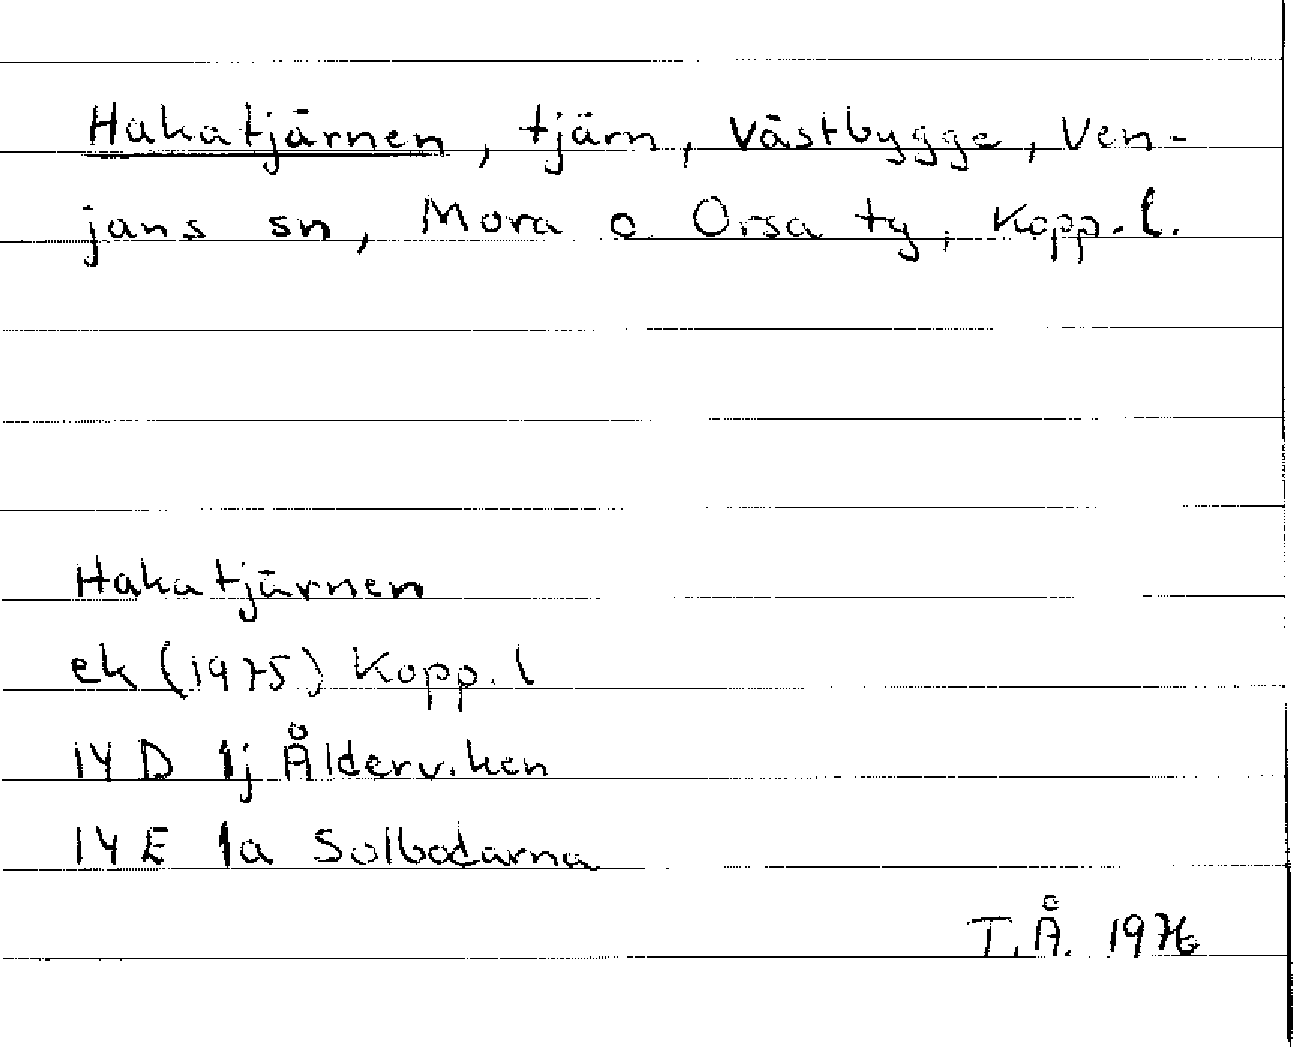 Hakatjärnen, tjärn, Västbygge, Ven-
jans sn, Mora o Orsa ty, Kopp.l.
Hakatjärnen
ek (1975) Kopp.l
14 D 1j Ålderviken
14 E 1a Solbodarna
T.Å. 1976